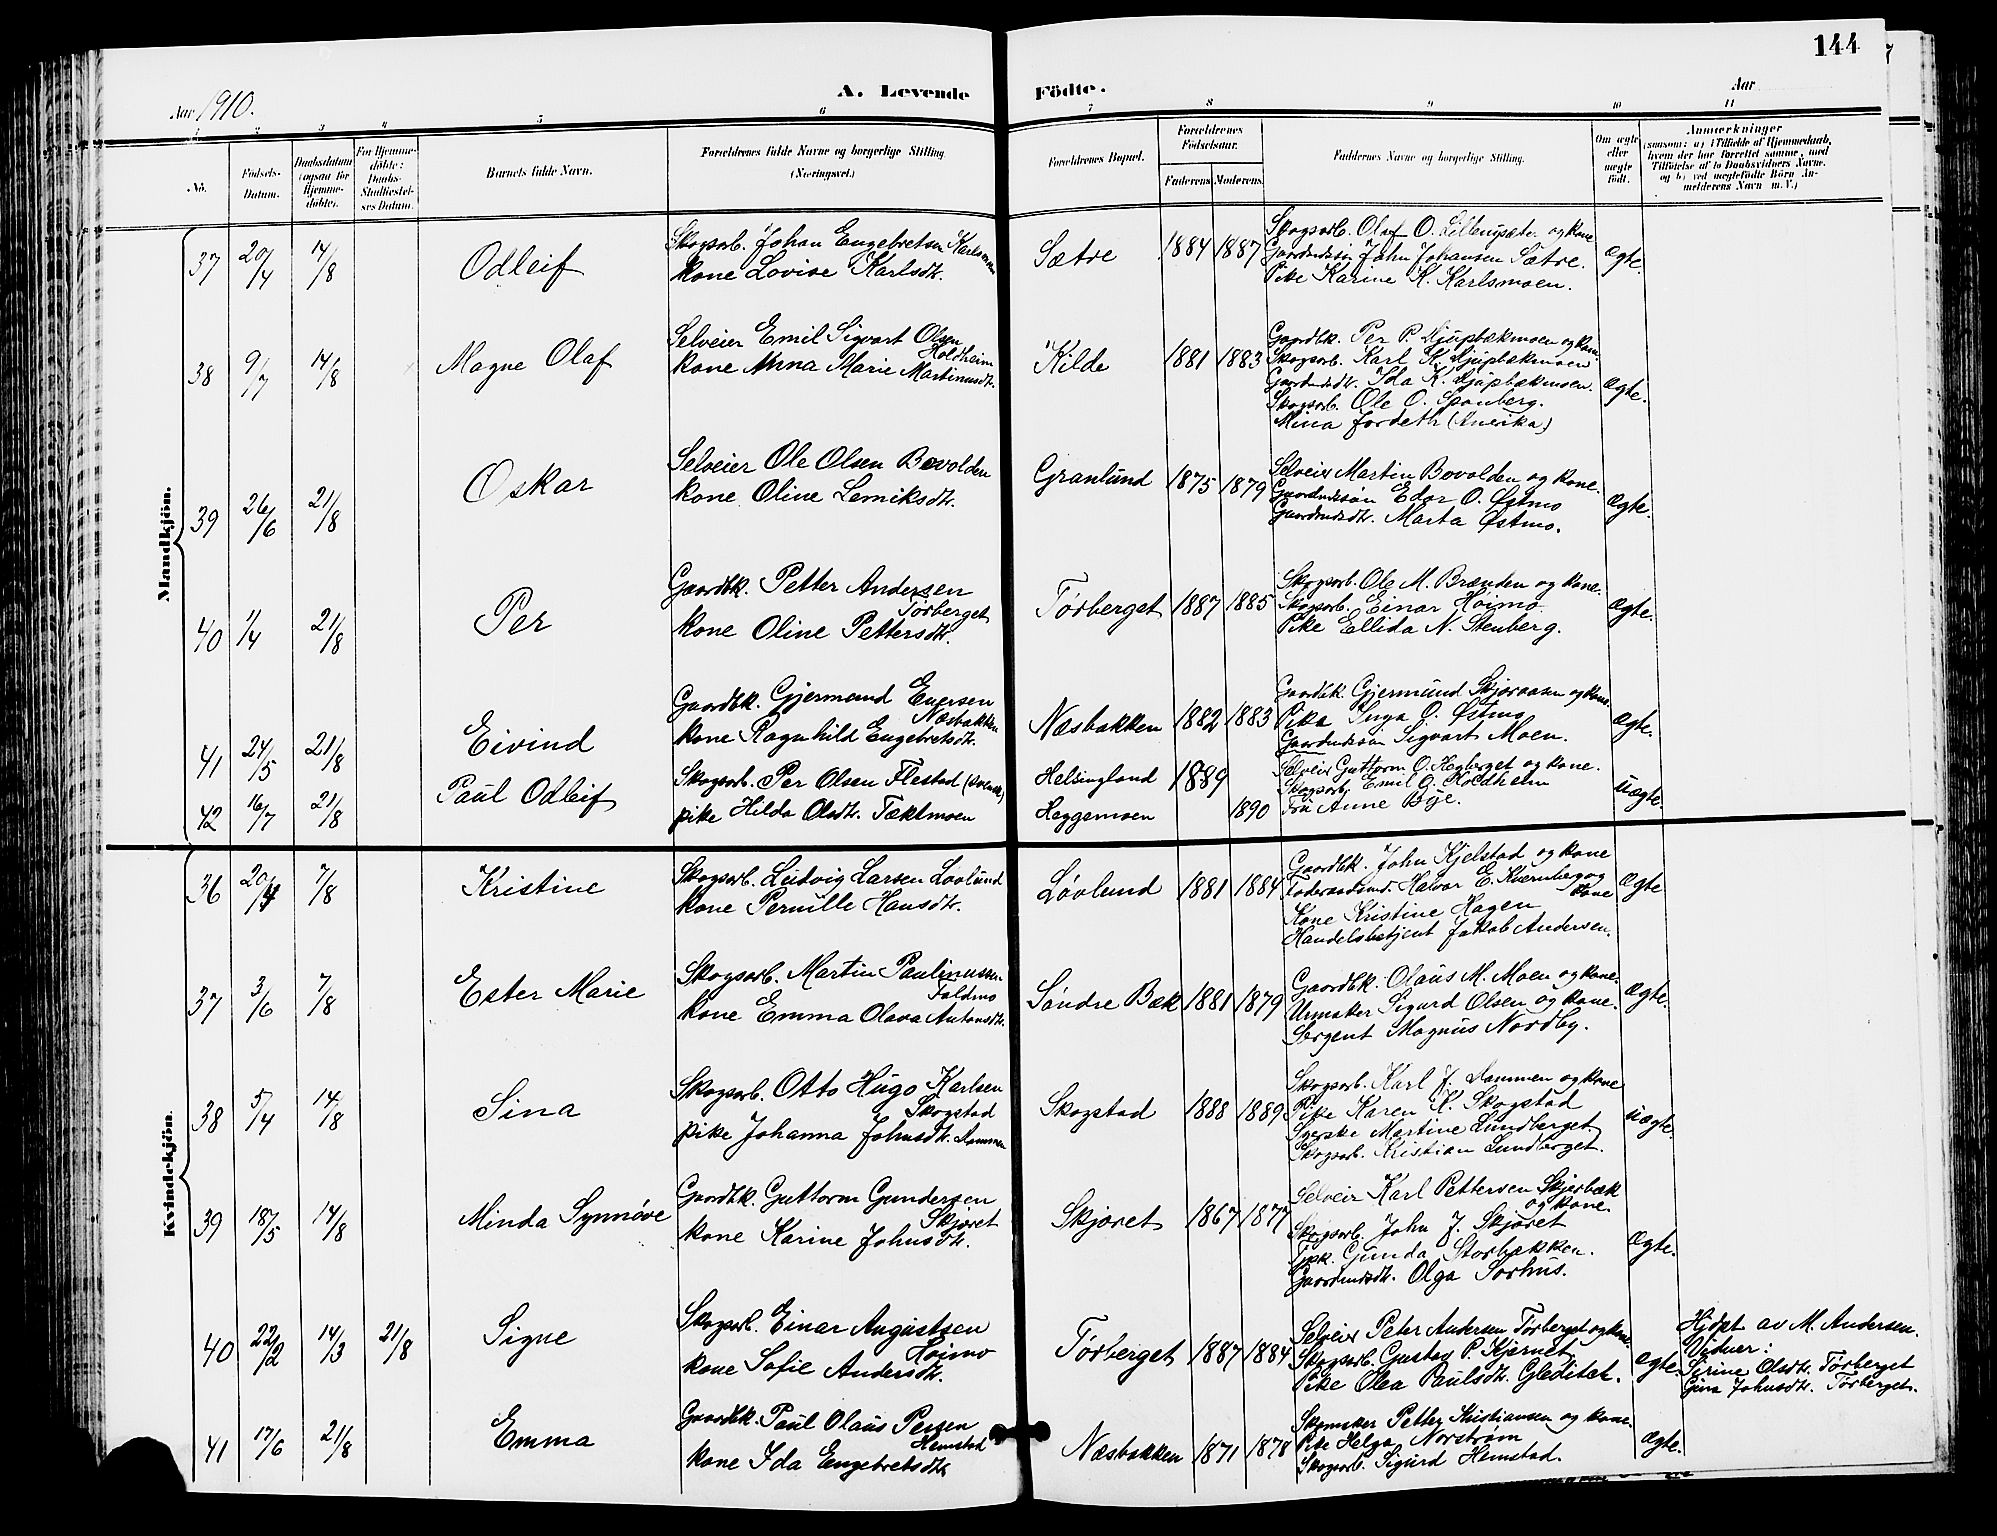 144
Aar 1910.
A. Levende Födte.
Aar
1 2 3 4 5 6 7 8 9 10 11
No.
Födsels-Datum.
Daabsdatum (ogsaa for Hjemme-döbte).
For Hjemme-döbte: Daabs-Stadfæstel-ses Datum.
Barnets fulde Navn.
Forældrenes fulde Navne og borgerlige Stilling. (Næringsvei.)
Forældrenes Bopæl.
Forældrenes Födselsaar.
Faderens. Moderens.
Faddernes Navne og borgerlige Stilling.
Om ægte eller uægte född.
Anmærkninger
(saasom: a) i Tilfælde af Hjemmedaab,
hvem der har forrettet samme, med
Tilföielse af to Daabsvidners Navne.
og b) ved uægtefödte Börn An-
melderens Navn m. V.)
Mandkjön.
37 20/4 14/8 Odleif
Skogsarb. Johan Engebretsen Karlsmoen
Kone Lovise Karlsdtr.
Sætre 1884 1887
Skogsarb. Olaf O. Lillenysæte og kone
Gaardmdssön John Johansen Sætre.
Pike Karine K. Karlsmoen.
Ægte.
38 9/7 14/8 Magne Olaf
Selveier Emil Sigvart Olsen
Holdheim
Kone Anna Marie Martinusdtr.
Kilde 1881 1883
Gaardbk. Per P. Djupbækmoen og kone
Skogsarb. Karl K. Djupbækmoen
Gaardmdsdtr. Ida K. Djupbækmoen.
Skogsarb. Ole O. Spanberg.
Mina Jordeth (Amerika)
Ægte.
39 26/6 21/8 Oskar
Selveier Ole Olsen Bovolden
Kone Oline Lemiksdtr.
Granlund 1875 1879
Selveier Martin Bovolden og kone.
Gaardmdssön Edor O. Østmo
Gaardmdsdtr. Marta Østmo.
Ægte.
40 1/4 21/8 Per
Gaardbk. Petter Andersen
Törberget
Kone Oline Pettersdtr.
Törberget 1887 1885
Skogsarb. Ole M. Brænden og kone.
Skogsarb. Einar Höimo
Pike Ellida N. Stenberg.
Ægte.
41 24/5 21/8 Eivind
Gaardbk. Gjermund Eversen
Næsbakken
Kone Ragnhild Engebretsdtr.
Næsbakken 1882 1883
Gaardbk. Gjermund Skjøraasen og kone.
Pike Inga O. Østmo
Gaardmdssön Sigvart Moen.
Ægte.
42 16/7 21/8 Paul Odleif
Skogsarb. Per Olsen Flestad (svensk)
pike Hilda Olsdtr. Tæktmoen
Helsingland 1889
Heggemoen 1890
Selveier Guttorm O. Hegberget og kone.
Skogsarb. Emil G. Holdheim
Fru Anne Bye.
Uægte.
Kvindekjön.
36 20/4 7/8 Kristine
Skogsarb. Ludvig Larsen Lövlund
Kone Pernille Hansdtr.
Lövlund 1881 1884
Gaardbk. John Kjelstad og kone
Foderaadsmd. Halvor E. Kvernberg og
kone
Kone Kristine Hagen
Handelsbetjent Jakob Andersen.
Ægte
37 3/6 7/8 Ester Marie
Skogsarb. Martin Paulinussen
Foldmo
Kone Emma Olava Antonsdtr.
Söndre Bæk 1881 1879
Gaardbk. Olaus M. Moen og kone.
Urmaker Sigurd Olsen og kone.
Sergent Magnus Nordby.
Ægte.
38 5/4 14/8 Sina
Skogsarb. Otto Hugo Karlsen
Skogstad
pike Johanna Johnsdtr. Dammen
Skogstad 1888 1889
Skogsarb. Karl J. Dammen og kone
Pike Karen K. Skogstad
Syerske Martine Lundberget.
Skogsarb. Kristian Lundberget.
Uægte.
39 18/5 14/8 Minda Synnöve
Gaardbk. Guttorm Gundersen
Skjöret
Kone Karine Johnsdtr.
Skjöret 1867 1877
Selveier Karl Pettersen Skjærbæk
og kone.
Skogsarb. John J. Skjöret
Tjpk. Gunda Storbækken.
Gaardmdsdtr. Olga Sorhus.
Ægte.
40 22/2 14/3 21/8 Signe
Skogsarb. Einar Augustsen
Höimo
Kone Sofie Andersdtr.
Törberget 1887 1884
Selveier Peter Andersen Törberget og kone.
Skogsarb. Gustav P. Kjernet
Pike Olea Paulsdtr. Gleditsch.
Ægte.
Hjdpt av M. Andersen.
Vidner:
Sirine Olsdtr. Törberget
Gina Johnsdtr. Törberget.
41 17/6 21/8 Emma
Gaardbk. Paul Olaus Persen
Hemstad
Kone Ida Engebretsdtr.
Næsbakken 1871 1878
Skomaker Petter Kristiansen og kone.
Pike Helga Norström
Skogsarb. Sigurd Hemstad.
Ægte.